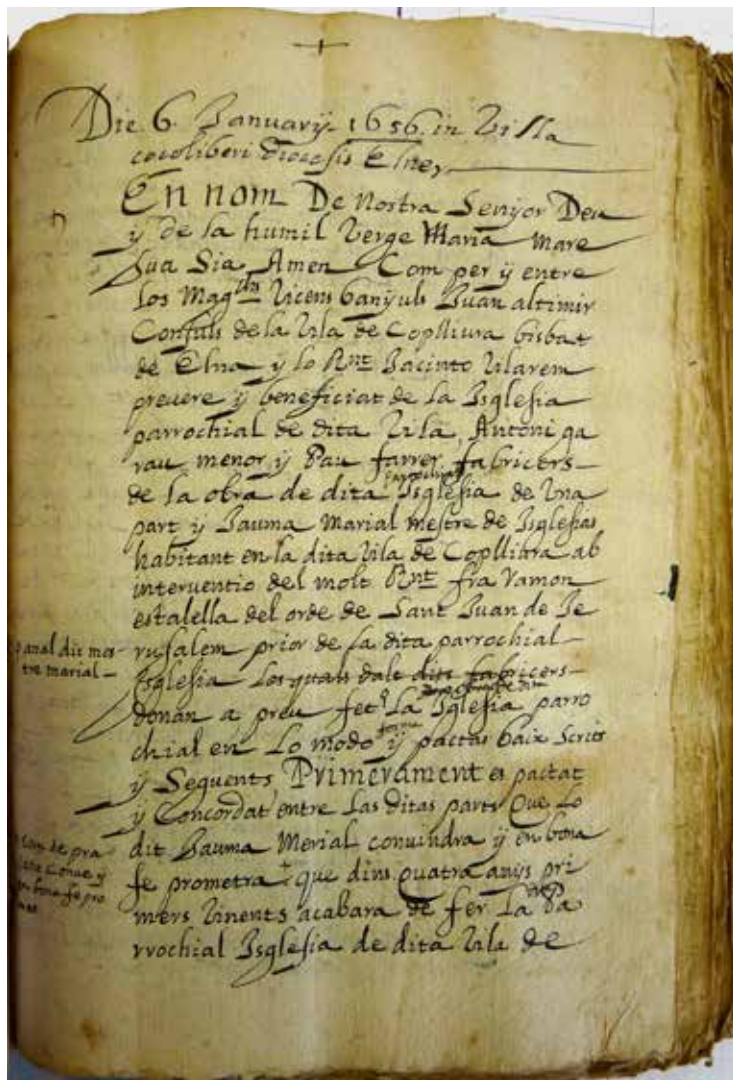 Die 6 Januarij 1656 in Villa
cocoliberi diocesis Elnen
En nom De Nostra Senyor Deu
ÿ de la humil Verge Maria Mare
sua Sia Amen Com per ÿ entre
los Magchs Vicens banÿuls Juan altimir
Consuls de la Vila de Coplliura bisbat
de Elna ÿ lo Rnt Jacinto Vilarem
prevere ÿ beneficiat de la Isglesia
parrochial de dita Vila, Antoni ga
rau menor ÿ Pau farrer fabricers
parrochial
de la obra de dita Isglesia de Una
part ÿ Jauma Marial mestre de Isglesias
habitant en la dita Vila de Coplliura ab
interventio del molt Rnt fra Ramon
estalella del orde de Sant Juan de Je
rusalem prior de la dita parrochial
anal dit mes
tre marial
Isglesia Los quals dalt dits fabricers
donan a preu fet La Isglesia parro
chial en Lo modo forma ÿ pactas baix Scrits
ÿ Seguents Primerament es pactat
ÿ Concordat entre Las ditas parts Que Lo
dit Jauma Merial convindra ÿ en bona
de pra
conve ÿ
en bona fe pro
fe prometra que dins quatra anÿs pri
mers Vinents acabara de fer La Pa
rrochial Isglesia de dita Vila de